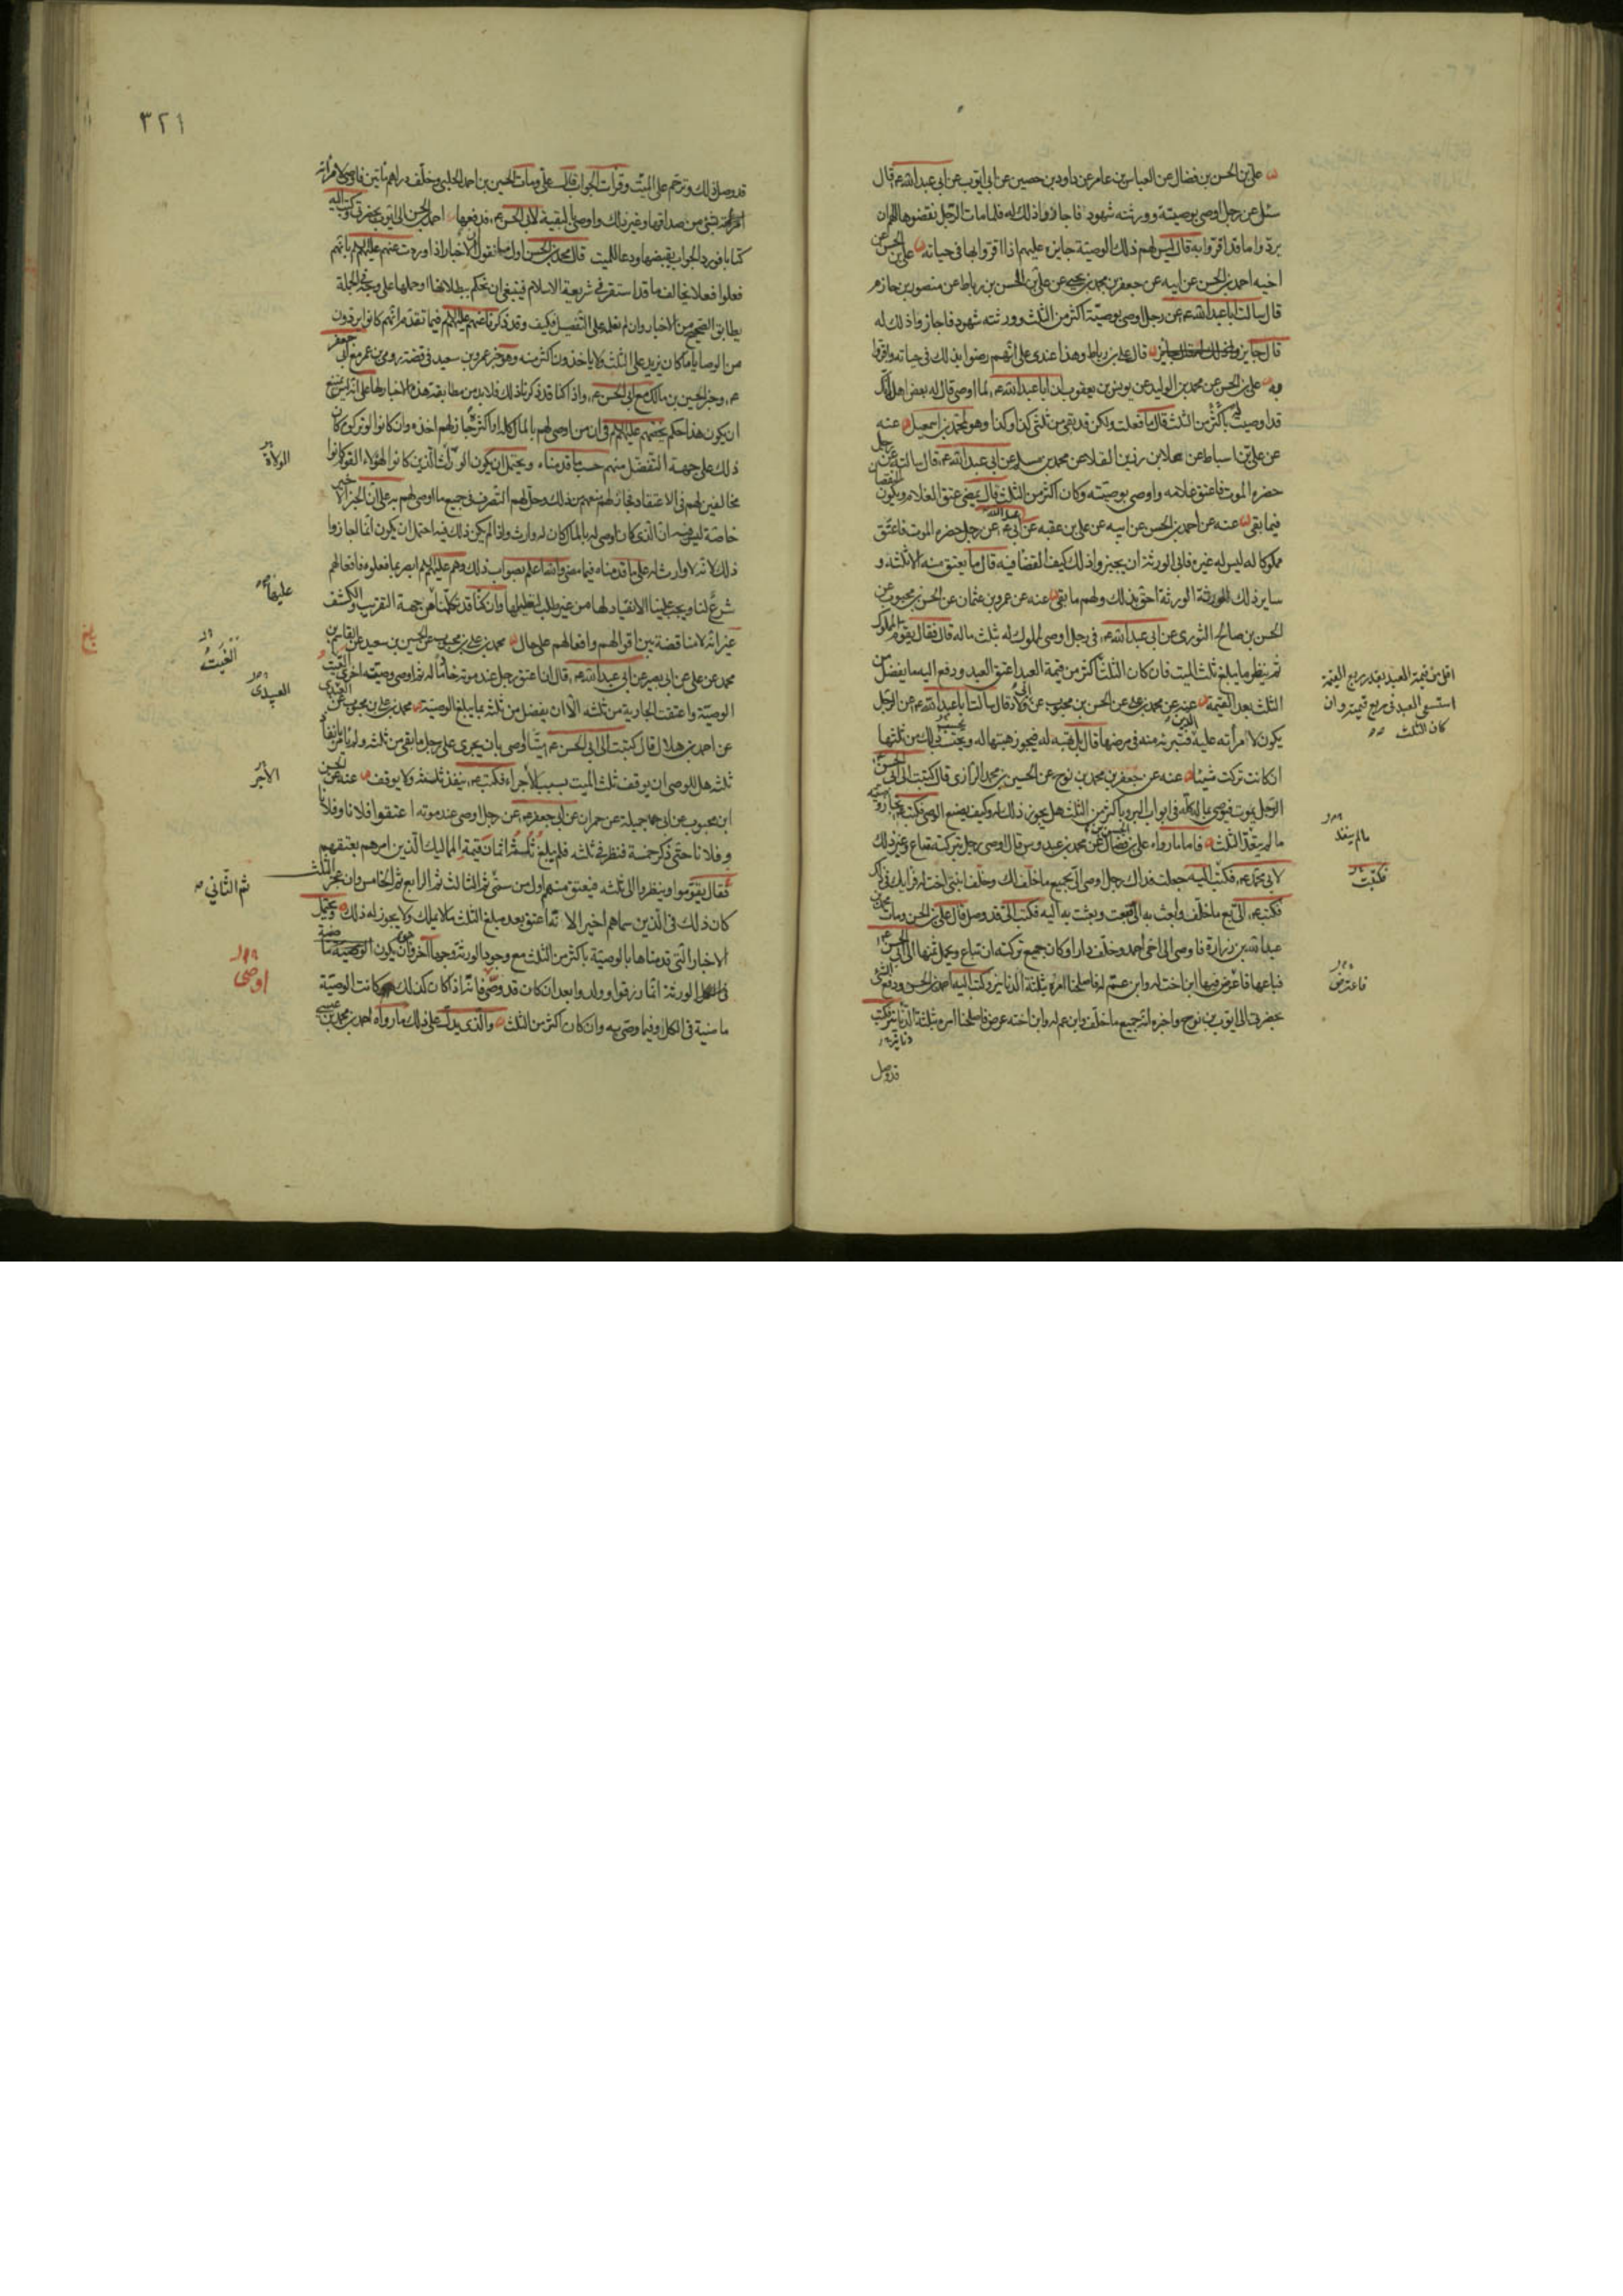 علي بن الحسن بن فضال عن العباس بن عامر عن داود بن حصين عن ابي ايوب عن ابي عبد الله ع قال
سئل عن رجل اوصى بوصيته وورثته شهود فاجازوا ذلك له فلما مات الرجل نقضوا الهم ان
يردوا ما قد اقروا به قال ليس لهم ذلك الوصية جايزه عليهم اذا اقروا بها في حياته علي بن الحسن عن
اخيه احمد بن الحسن عن ابيه عن جعفر بن محمد بن يحيى عن علي بن الحسن بن رباط عن منصور بن حازم
قال سالت ابا عبد الله ع عن رجل اوصى بوصيته اكثر من الثلث وورثته شهود فاجازوا ذلك له
قال جايز قال علي بن رباط وهذا عندي على انهم رضوا بذلك في حياته واقروا
به علي بن الحسن عن محمد بن الوليد عن يونس بن يعقوب ان ابا عبد الله ع لما اوصى قال له بعض اهله انك
قد اوصيت باكثر من الثلث قال ما فعلت ولكن قد بقي من ثلثي كذا وكذا وهو لمحمد بن اسمعيل عنه
عن علي بن اسباط عن علا بن رزين القلا عن محمد بن مسلم عن ابي عبد الله ع قال سالته عن رجل
حضره الموت فاعتق غلامه واوصى بوصيته وكان اكثر من الثلث قال يمضي عتق الغلام ويكون النقصان
فيما بقي عنه عن احمد بن الحسن عن ابيه عن علي بن عقبه عن ابي عبد الله ع عن رجل حضره الموت فاعتق
مملوكا له ليس له غيره فابى الورثة ان يجيزوا ذلك كيف القضا فيه قال ما يعتق منه الا ثلثه و
ساير ذلك الورثة احق بذلك ولهم ما بقي عنه عن عمرو بن عثمان عن الحسن بن محبوب عن
الحسن بن صالح الثوري عن ابي عبد الله ع في رجل اوصى لمملوك له بثلث ماله قال فقال يقوم المملوك
ثم ينظر ما يبلغ ثلث الميت فان كان الثلث اكثر من قيمة العبد اعتق العبد ودفع اليه ما يفضل من
الثلث بعد القيمة عنه عن محمد بن علي عن الحسن بن محبوب عن ابي ولاد قال سالت ابا عبد الله ع عن الرجل
يكون لامرأته عليه الدين فتبريه منه في مرضها قال بل تهبه له فيجوز هبتها له ويحتسب ذلك من ثلثها
ان كانت تركت شيئا عنه عن جعفر بن محمد بن نوح عن الحسين بن محمد الرازي قال كتبت الى ابي الحسن ع
الرجل يموت فيوصي بماله كله في ابواب البر وباكثر من الثلث هل يجوز ذلك له وكيف يصنع الوصي فكتب تجاز وصيته
ما لم يتعد الثلث فاما ما رواه علي بن الحسن بن فضال عن محمد بن عبدوس قال اوصى رجل بتركته متاع وغير ذلك
لابي محمد ع فكتبت اليه جعلت فداك رجل اوصى الي بجميع ما خلف لك وخلف ابنتي اخت له فرأيك في ذلك
فكتب ع الي بع ما خلف وابعث به الي فبعت وبعثت به اليه فكتب الي قد وصل قال علي بن الحسن ومات محمد بن
عبد الله بن زرارة فاوصى الى اخي احمد وخلف دارا وكان جميع تركته ان تباع ويحمل ثمنها الى ابي الحسن ع
فباعها فاعترض فيها ابن اخت له وابن عم له فاصلحنا امره بثلثة الدنانير وكتب اليه احمد بن الحسن ودفع الشئ
بحضرتي الى ايوب بن نوح واخبره انه جميع ما خلف وابن عم له وابن اخته عرض فاصلحنا امره بثلثة الدنانير فكتب
قد وصل
اقل من قيمة العبد بقدر ربع القيمة
استسعي العبد في ربع قيمته وان
كان الثلث
ما لم ينفد
فكتبت
فاعترض
٣٢١
قد وصل ذلك وترحم على الميت وقرات الجواب قال علي ومات الحسين بن احمد الحلبي وخلف دراهم مأتين فاوصى لامرأته
بشئ من صداقها وغير ذلك واوصى بالبقية لابي الحسن ع فدفعها احمد بن الحسن الى ايوب بحضرتي وكتب اليه
كتابا فورد الجواب بقبضها ودعا للميت قال محمد بن الحسن اول ما نقول ان الاخبار اذا وردت عنهم عليهم السلام بانهم
فعلوا فعلا يخالف ما قد استقر في شريعة الاسلام فينبغي ان نحكم ببطلانها او حملها على وجه في الجملة
يطابق الصحيح من الاخبار وان لم نعلمه على التفصيل فكيف وقد ذكرنا عنهم عليهم السلام فيما تقدم انهم كانوا يردون
من الوصايا ما كان يزيد على الثلث ولا ياخذون اكثر منه وهو خبر عمرو بن سعيد في قصة رومي بن عمر مع ابي جعفر
ع وخبر الحسين بن مالك مع ابي الحسن ع واذا كنا قد ذكرنا ذلك فلا بد من مطابقة هذه الاخبار لها على انه ليس يمتنع
ان يكون هذا حكم يخصهم عليهم السلام في ان من اوصى لهم بالمال كله او اكثره جاز لهم اخذه وان كانوا لو تركوه كان
ذلك على جهة التفضل منهم حسب ما قدمناه ويحتمل ان يكون الوراث الذين كانوا لهؤلاء القوم كانوا
مخالفين لهم في الاعتقاد فجاز لهم منعهم من ذلك وحل لهم التصرف في جميع ما اوصى لهم به على ان الخبر الاخير
خاصة ليس فيه ان الذي كان اوصى له بالمال كان له وارث واذا لم يكن ذلك فيه احتمل ان يكون انما اجازوا
ذلك لانه لا وارث له على ما قدمناه فيما مضى والله اعلم بصواب ذلك وهم عليهم السلام ابصر بما فعلوه فافعالهم
شرع لنا ويجب علينا الانقياد لها من غير طلب لتعليلها وان كنا قد تكلمنا من جهة التقريب والكشف
عن انه لا مناقضة بين اقوالهم وافعالهم على حال محمد بن علي بن محبوب عن الحسين بن سعيد عن القاسم بن
محمد عن علي عن ابي بصير عن ابي عبد الله ع قال ان اعتق رجل عند موته خادما له ثم اوصى بوصية اخرى الغيت
الوصية واعتقت الجارية من ثلثه الا ان يفضل من ثلثه ما يبلغ الوصية محمد بن علي بن محبوب عن العبيدي
عن احمد بن هلال قال كتبت الى ابي الحسن ع ميت اوصى بان يجرى على رجل ما بقي من ثلثه ولم يأمر بانفاذ
ثلثه هل للوصي ان يوقف ثلث الميت بسبب الاجراء فكتب ع ينفذ ثلثه ولا يوقف عنه عن الحسن
ابن محبوب عن ابي جميلة عن حمران عن ابي جعفر ع عن رجل اوصى عند موته اعتقوا فلانا وفلانا
وفلانا حتى ذكر خمسة فنظر في ثلثه فلم يبلغ ثلثه اثمان قيمة المماليك الذين امرهم بعتقهم
فقال يقوموا وينظروا الى ثلثه فيعتق منهم اول من سمى ثم الثالث ثم الرابع ثم الخامس وان عجز الثلث
كان ذلك في الذين سماهم اخيرا لانه اعتق بعد مبلغ الثلث ما لا يملك ولا يجوز له ذلك ويحتمل
الاخبار التي قدمناها بالوصية باكثر من الثلث مع وجود الورثة وجها آخر وهو ان يكون الوصية ماضية
الورثة انما رزقوا وولدوا بعد ان كان قد وصى فانه اذا كان كذلك كانت الوصية
ماضية في الكل وفيما وصى به وان كان اكثر من الثلث والذي يدل على ذلك ما رواه احمد بن محمد بن عيسى
الولاة
عليها
الغيت
العبيدي
الاجر
ثم الثاني
اوصى
بلغ